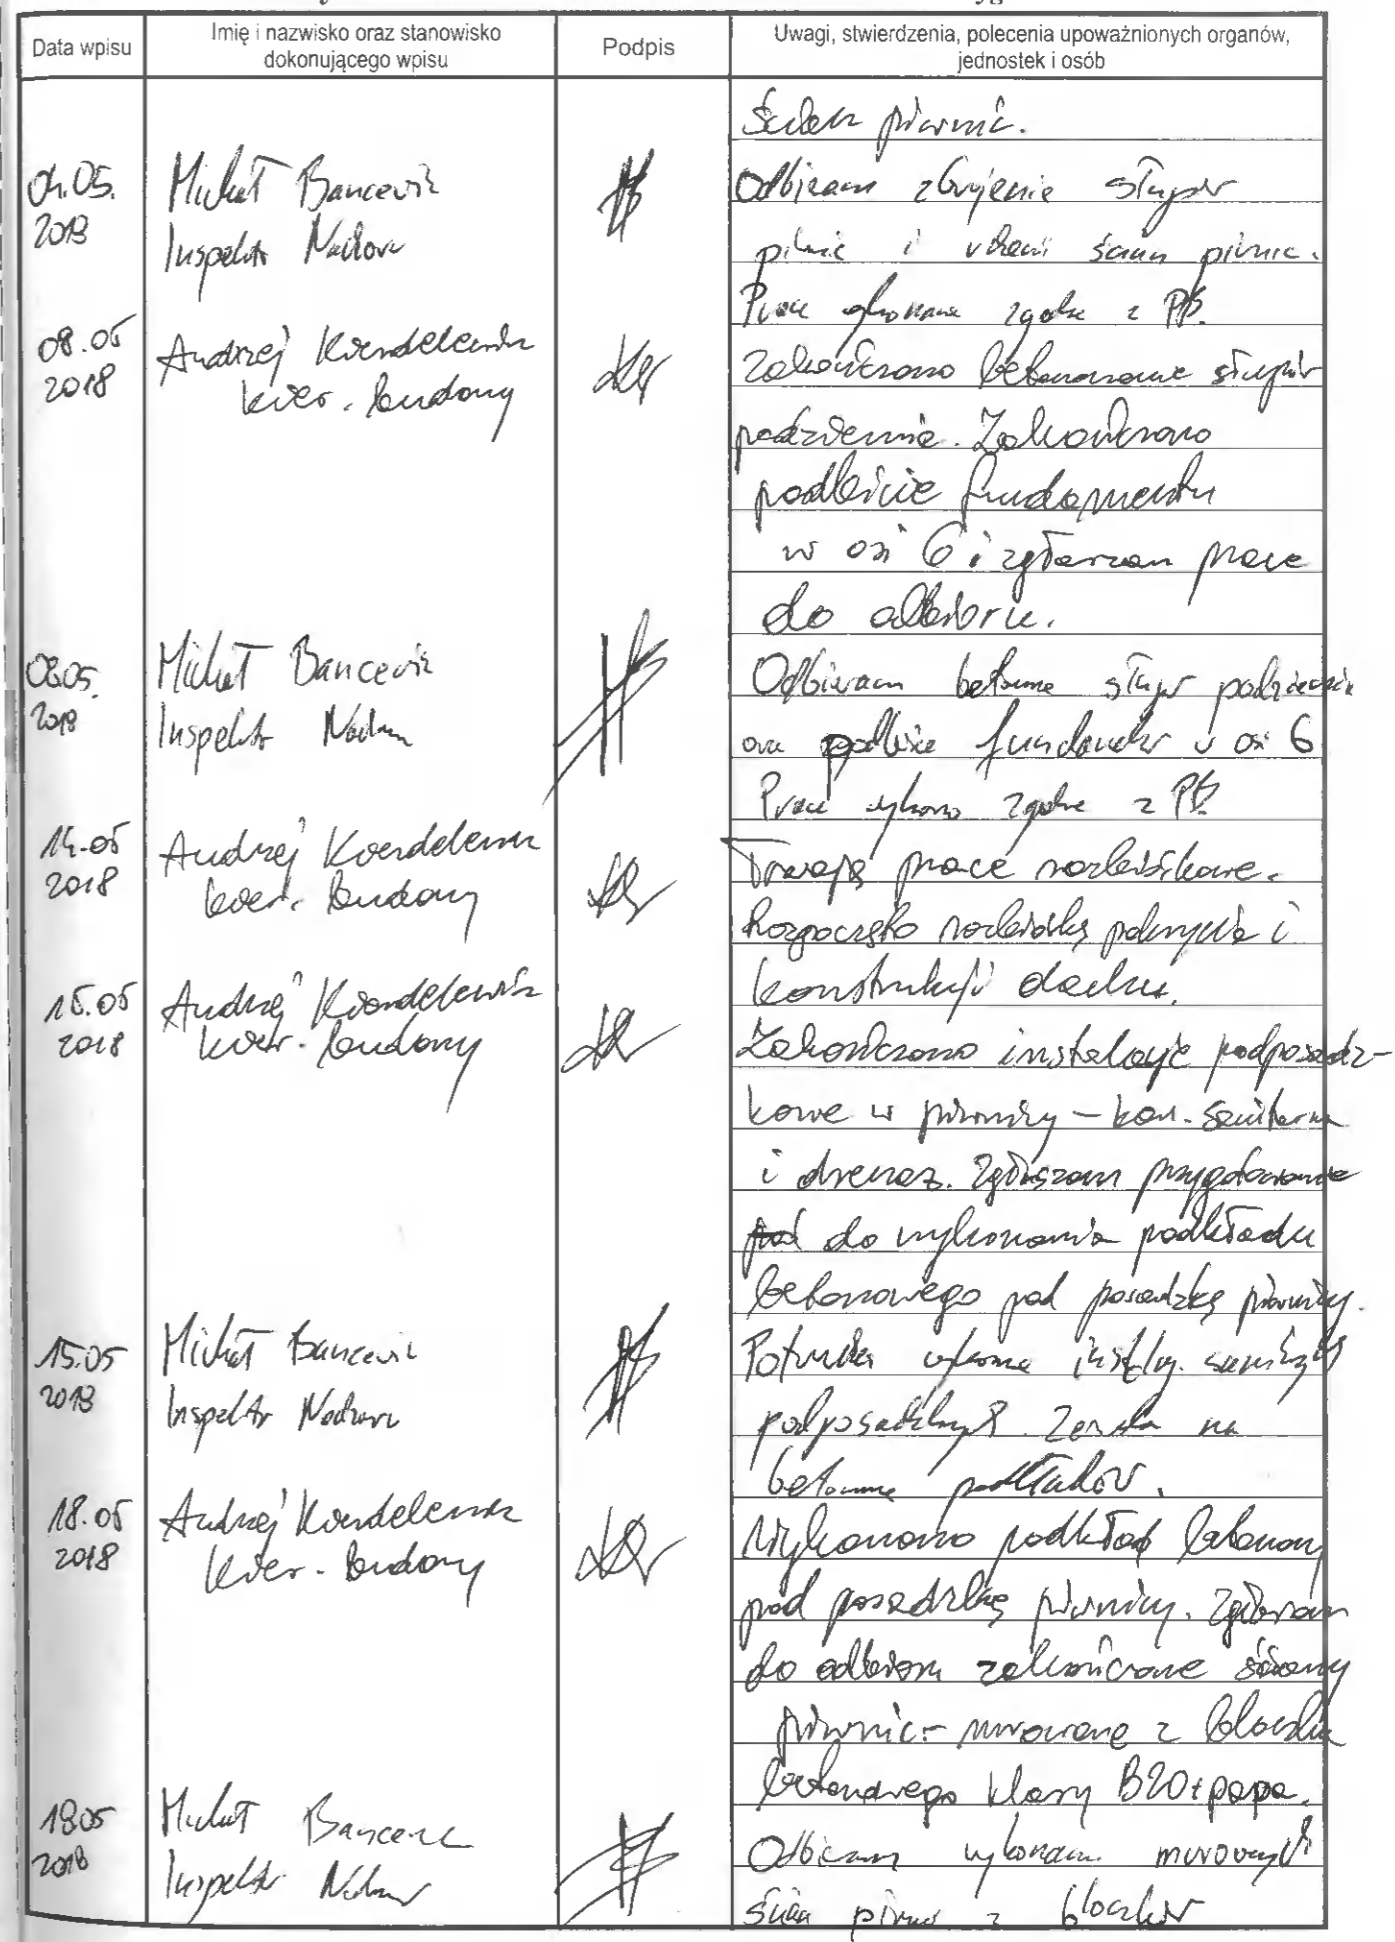 Data wpisu
Imię i nazwisko oraz stanowisko
dokonującego wpisu
Podpis
Uwagi, stwierdzenia, polecenia upoważnionych organów,
jednostek i osób
ścian piwnic.
04.05.
2018
Michał Bancewicz
Inspektor Nadzoru
Odbieram zbrojenie słupów
piwnic i ścian piwnic.
Prace wykonane zgodnie z PB.
08.05
2018
Andrzej
kier. budowy
Zakończono betonowanie słupów
podziemia. Zakończono
podbicie fundamentu
w osi 6 i zgłaszam prace
do odbioru.
08.05.
2018
Michał Bancewicz
Inspektor Nadzoru
Odbieram betonowanie słupów podziemia
oraz podbicie fundamentów w osi 6
Prace wykonano zgodnie z PB.
14.05
2018
Andrzej
kier. budowy
Trwają prace rozbiórkowe.
Rozpoczęto rozbiórkę pokrycia i
konstrukcji dachu.
15.05
2018
Andrzej
kier. budowy
Zakończono instalacje podposadz-
kowe w piwnicy - kan. sanitarna
i drenaż. Zgłaszam przygotowanie
do wykonania podkładu
betonowego pod posadzkę piwnicy.
15.05
2018
Michał Bancewicz
Inspektor Nadzoru
Potwierdzam wykonanie
podposadzkowych na
betonowanie podkładów.
18.05
2018
Andrzej
kier. budowy
Wykonano podkład betonowy
pod posadzkę piwnicy. Zgłaszam
do odbioru zakończone ściany
piwnic - murowane z bloczka
betonowego klasy B20 + papa.
18.05
2018
Michał Bancewicz
Inspektor Nadzoru
Odbieram murowanych
ścian piwnic z bloczków